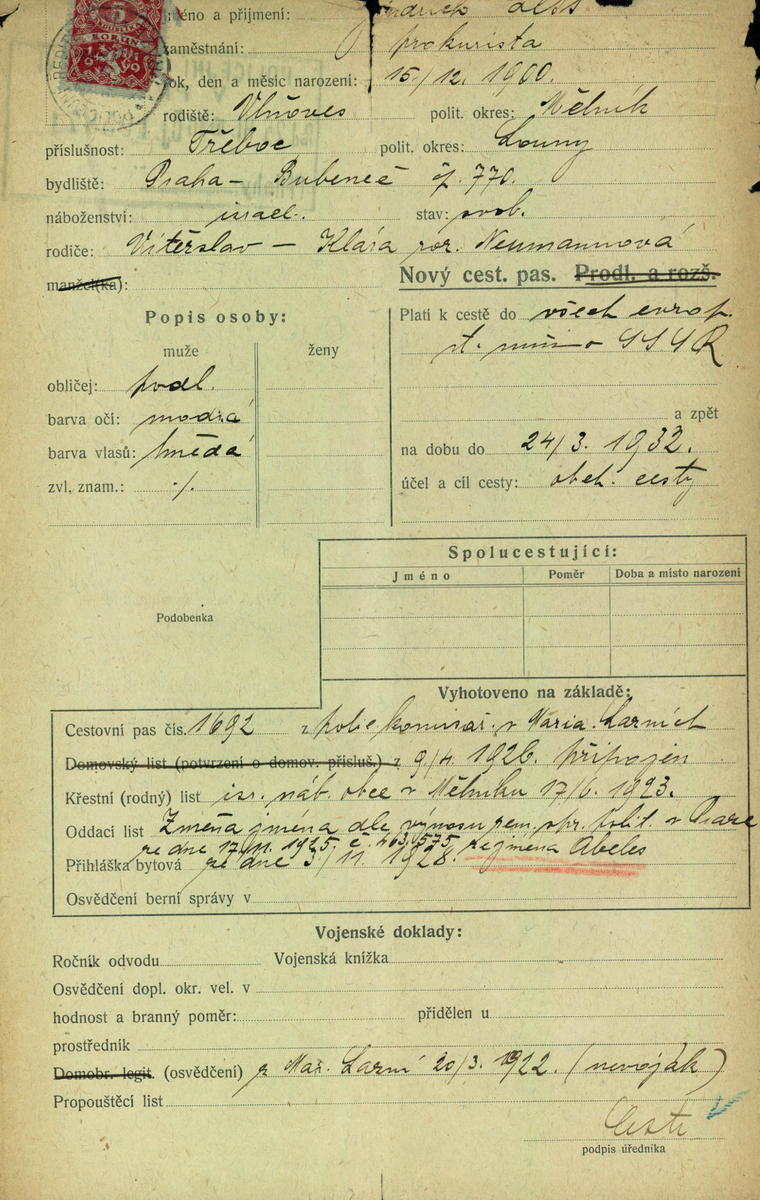 jméno a příjmení:
zaměstnání: prokurista
rok, den a měsíc narození: 15./12. 1900.
rodiště: Vlňoves polit. okres: Mělník
příslušnost: Třeboc polit. okres: Louny
bydliště: Praha – Bubeneč čp. 770.
náboženství: israel. stav: svob.
rodiče: Vítěrslav – Klára roz. Neumannová
manžel(ka):
Nový cest. pas. Prodl. a rozš.
Popis osoby:
muže ženy
obličej: podl.
barva očí: modrá
barva vlasů: hnědá
zvl. znam.: ·/.
Platí k cestě do všech evrop.
st. mimo SSSR
a zpět
na dobu do 24/3. 1932.
účel a cíl cesty: obch. cesty
Podobenka
Spolucestující:
Jméno Poměr Doba a místo narození
Vyhotoveno na základě:
Cestovní pas čís. 1692 z polic. komisař. v Maria. Lazních
Domovský list (potvrzení o domov. přísluš.) z 9/4. 1926. připojen
Křestní (rodný) list isr. náb. obce v Mělníku 17/6. 1923.
Oddací list Změna jména dle výnosu zem. spr. polit. v Praze
ze dne 17./11. 1925. č. 463.575 ze jména Abeles
Přihláška bytová ze dne 3/11. 1928.
Osvědčení berní správy v
Vojenské doklady:
Ročník odvodu Vojenská knížka
Osvědčení dopl. okr. vel. v
hodnost a branný poměr: přidělen u
prostředník
Domobr. legit. (osvědčení) z Mar. Lazní 20/3. 1922. (nevoják)
Propouštěcí list
podpis úředníka